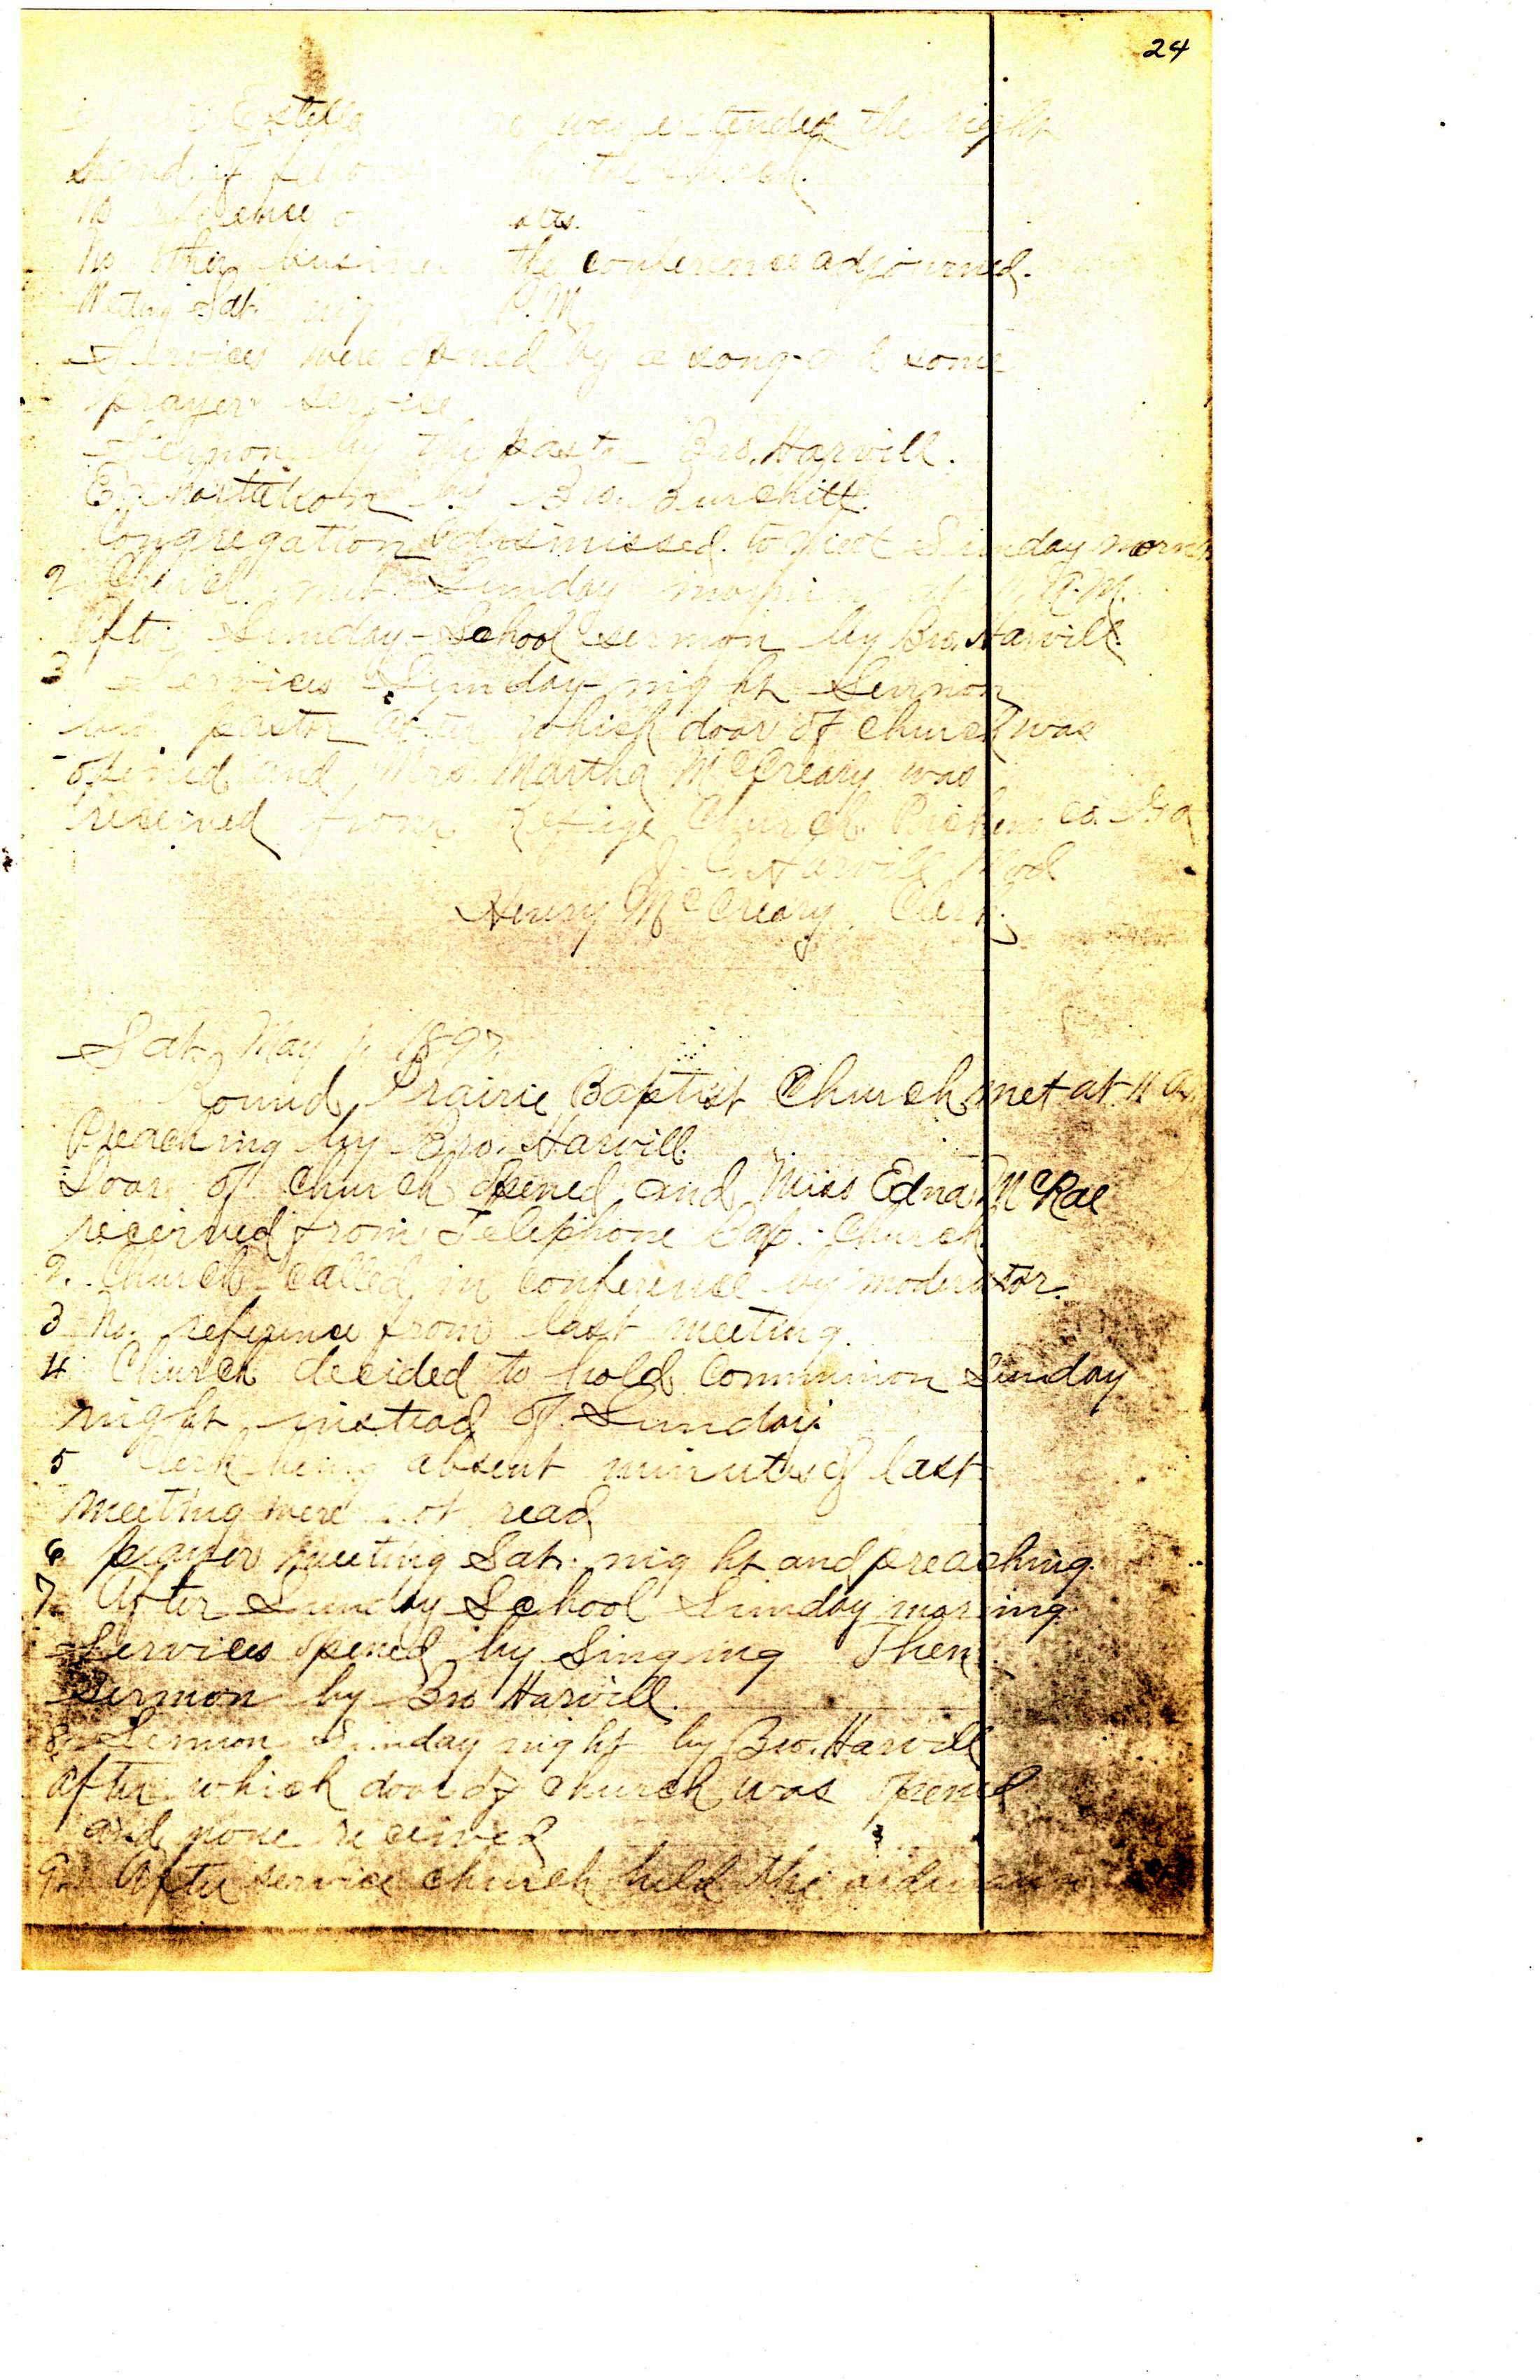 24
Estella was extended the right
hand of the church.
No reference
No other business the conference adjourned.
Meeting Sat. P.M.
Services were opened by a song and some
prayer service
Sermon by the pastor Bro. Harvill.
Exhortation by Bro. Burchitt.
Congregation dismissed to meet Sunday morn
2 Church met Sunday morning at A.M.
After Sunday-School sermon by Bro. Harvill.
3 Services Sunday night Sermon
pastor after which door of church was
opened and Mrs. Martha McCreary was
received from Refuge Church Pickens Co. Ga
Harvill Mod
Henry McCreary, Clerk.
Sat. May 1897
Round Prairie Baptist Church met at 11 A.
Preaching by Bro. Harvill.
Door of church opened and Miss Edna McRae
received from Telephone Bap. Church
2. Church called in conference by moderator.
3 No. reference from last meeting.
4 Church decided to hold Communion Sunday
night instead of Sunday
5 Clerk being absent minutes of last
meeting were not read
6 prayer meeting Sat. night and preaching.
7. After Sunday School Sunday morning
Services opened by Singing Then
Sermon by Bro Harvill.
8. Sermon Sunday night by Bro. Harvill
after which door of church was opened
and none received
9. After service church held the